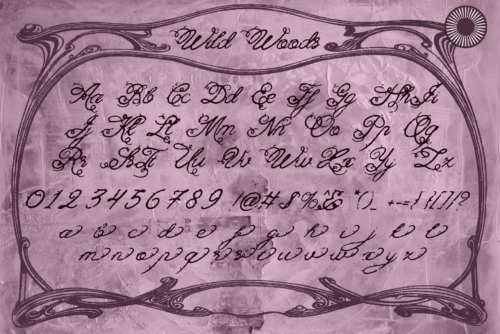 Wild Woods
Aa Bb Cc Dd Ee Ff Gg Hh Ii
Jj Kk Ll Mm Nn Oo Pp Qq
Rr Ss Tt Uu Vv Ww Xx Yy Zz
0123456789 !@#$%^& *()_ +-={}[]/?
a b c d e f g h i j k l
m n o p q r s t u v w x y z